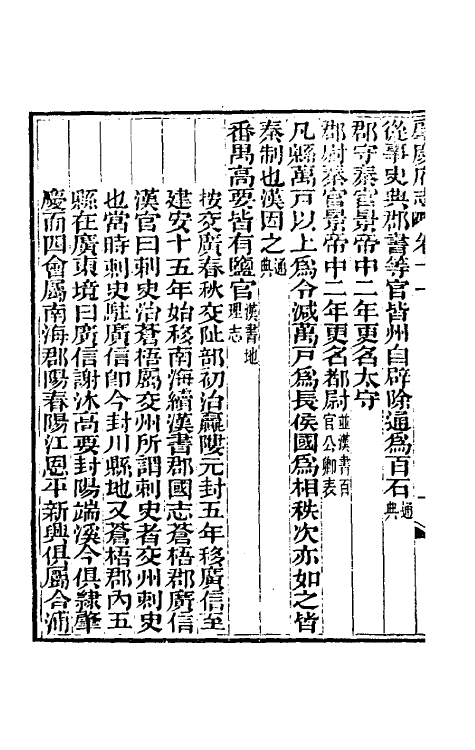 肇慶府志 卷十一
從事史典郡書等官皆州自辟除通爲百石通典
郡守秦官景帝中二年更名太守
郡尉秦官景帝中二年更名都尉並漢書百官公卿表
凡縣萬戸以上爲令減萬戸爲長侯國爲相秩次亦如之皆
秦制也漢因之通典
番禺高要皆有鹽官漢書地理志
按交廣春秋交阯部初治羸𨻻元封五年移廣信至
建安十五年始移南海續漢書郡國志蒼梧郡廣信
漢官曰刺史治蒼梧屬交州所謂刺史者交州刺史
也當時刺史駐廣信卽今封川縣地又蒼梧郡內五
縣在廣東境曰廣信謝沐高要封陽端溪今俱隸肇
慶而四會屬南海郡陽春陽江恩平新興俱屬合浦